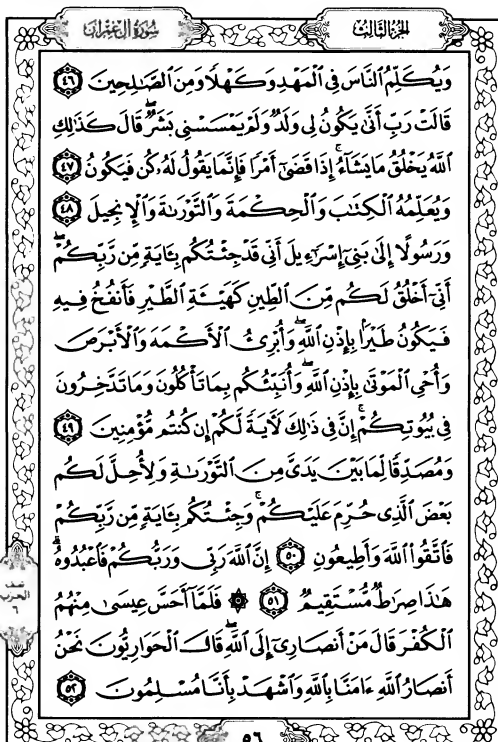 سُورَةُ آلِ عِمْرَانَ
الجُزءُ الثَّالِثُ
وَيُكَلِّمُ ٱلنَّاسَ فِى ٱلْمَهْدِ وَكَهْلًا وَمِنَ ٱلصَّٰلِحِينَ ٤٦
قَالَتْ رَبِّ أَنَّىٰ يَكُونُ لِى وَلَدٌ وَلَمْ يَمْسَسْنِى بَشَرٌ ۖ قَالَ كَذَٰلِكِ
ٱللَّهُ يَخْلُقُ مَا يَشَآءُ ۚ إِذَا قَضَىٰٓ أَمْرًا فَإِنَّمَا يَقُولُ لَهُۥ كُن فَيَكُونُ ٤٧
وَيُعَلِّمُهُ ٱلْكِتَٰبَ وَٱلْحِكْمَةَ وَٱلتَّوْرَىٰةَ وَٱلْإِنجِيلَ ٤٨
وَرَسُولًا إِلَىٰ بَنِىٓ إِسْرَٰٓءِيلَ أَنِّى قَدْ جِئْتُكُم بِـَٔايَةٍ مِّن رَّبِّكُمْ ۖ
أَنِّىٓ أَخْلُقُ لَكُم مِّنَ ٱلطِّينِ كَهَيْـَٔةِ ٱلطَّيْرِ فَأَنفُخُ فِيهِ
فَيَكُونُ طَيْرًۢا بِإِذْنِ ٱللَّهِ ۖ وَأُبْرِئُ ٱلْأَكْمَهَ وَٱلْأَبْرَصَ
وَأُحْىِ ٱلْمَوْتَىٰ بِإِذْنِ ٱللَّهِ ۖ وَأُنَبِّئُكُم بِمَا تَأْكُلُونَ وَمَا تَدَّخِرُونَ
فِى بُيُوتِكُمْ ۚ إِنَّ فِى ذَٰلِكَ لَـَٔايَةً لَّكُمْ إِن كُنتُم مُّؤْمِنِينَ ٤٩
وَمُصَدِّقًا لِّمَا بَيْنَ يَدَىَّ مِنَ ٱلتَّوْرَىٰةِ وَلِأُحِلَّ لَكُم
بَعْضَ ٱلَّذِى حُرِّمَ عَلَيْكُمْ ۚ وَجِئْتُكُم بِـَٔايَةٍ مِّن رَّبِّكُمْ
فَٱتَّقُوا۟ ٱللَّهَ وَأَطِيعُونِ ٥٠ إِنَّ ٱللَّهَ رَبِّى وَرَبُّكُمْ فَٱعْبُدُوهُ ۗ
هَٰذَا صِرَٰطٌ مُّسْتَقِيمٌ ٥١ ۞ فَلَمَّآ أَحَسَّ عِيسَىٰ مِنْهُمُ
ٱلْكُفْرَ قَالَ مَنْ أَنصَارِىٓ إِلَى ٱللَّهِ ۖ قَالَ ٱلْحَوَارِيُّونَ نَحْنُ
أَنصَارُ ٱللَّهِ ءَامَنَّا بِٱللَّهِ وَٱشْهَدْ بِأَنَّا مُسْلِمُونَ ٥٢
نصف
الحزب
٦
٥٦